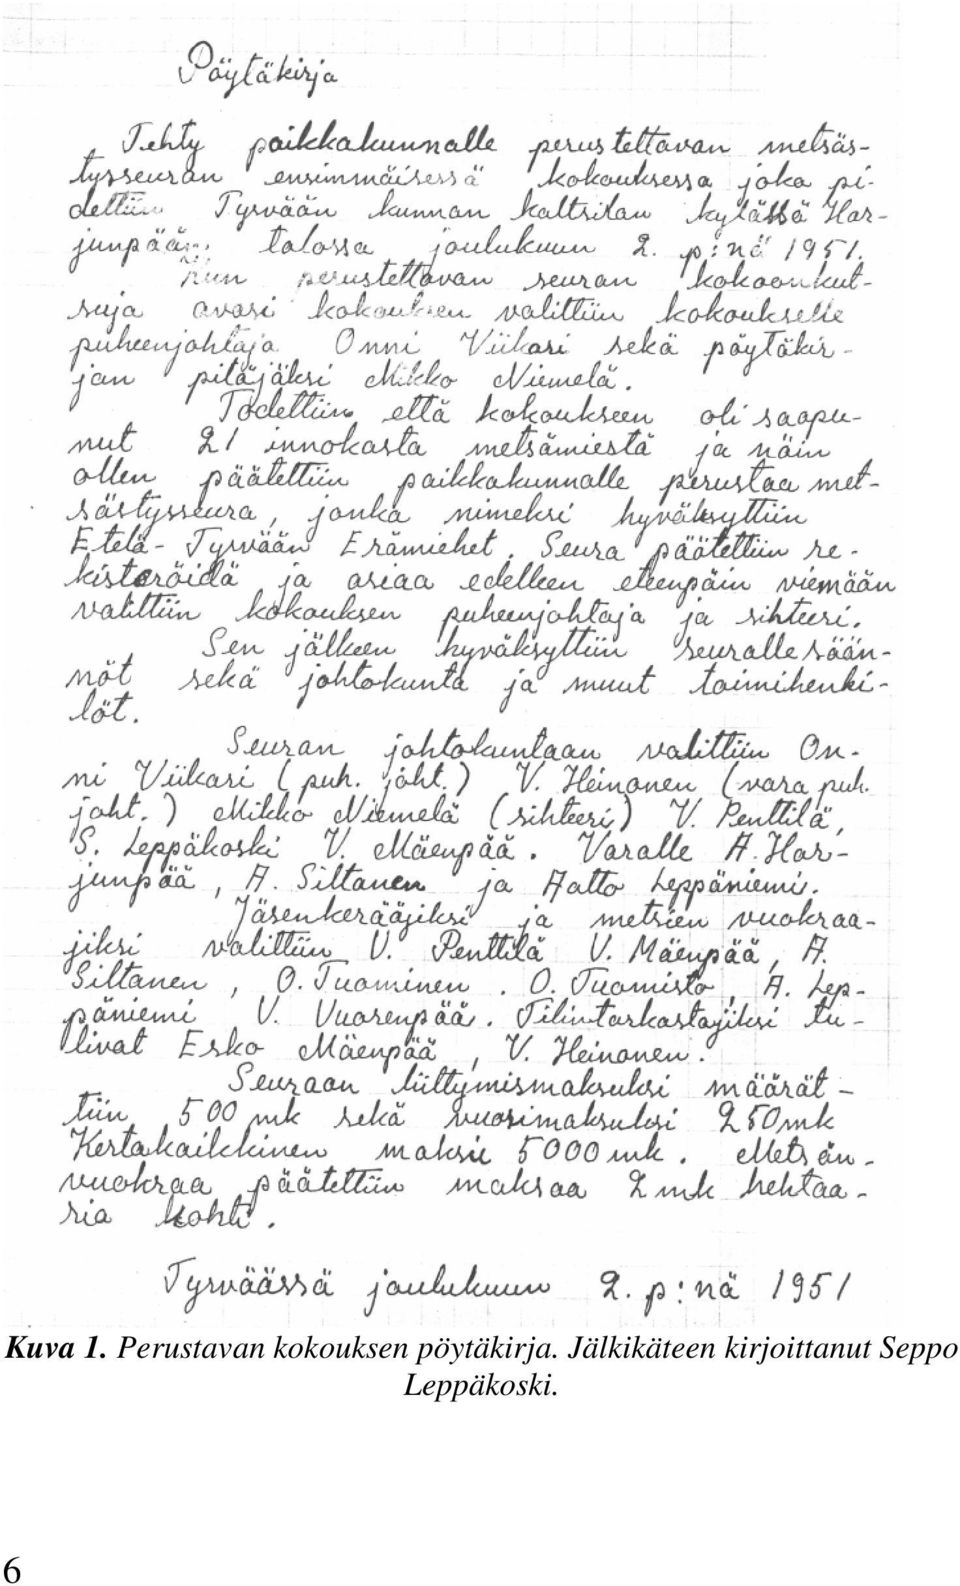 Pöytäkirja
Tehty paikkakunnalle perustettavan metsäs-
tysseuran ensimmäisessä kokouksessa joka pi-
dettiin Tyrvään kunnan kaltsilan kylässä Har-
junpään talossa joulukuun 2. p:nä 1951.
Kun perustettavan seuran kokoonkut-
suja avasi kokouksen valittiin kokoukselle
puheenjohtaja Onni Viikari sekä pöytäkir-
jan pitäjäksi Mikko Niemelä.
Todettiin että kokoukseen oli saapu-
nut 21 innokasta metsämiestä ja näin
ollen päätettiin paikkakunnalle perustaa met-
sästysseura, jonka nimeksi hyväksyttiin
Etelä-Tyrvään Erämiehet. Seura päätettiin re-
kisteröidä ja asiaa edelleen eteenpäin viemään
valittiin kokouksen puheenjohtaja ja sihteeri.
Sen jälkeen hyväksyttiin seuralle sään-
nöt sekä johtokunta ja muut toimihenki-
löt.
Seuran johtokuntaan valittiin On-
ni Viikari (puh. joht.) V. Heinonen (vara puh.
joht.) Mikko Niemelä (sihteeri) V. Penttilä,
S. Leppäkoski V. Mäenpää. Varalle A. Har-
junpää, A. Siltanen ja Aatto Leppäniemi.
Jäsenkerääjiksi ja metsien vuokraa-
jiksi valittiin V. Penttilä V. Mäenpää, A.
Siltanen, O. Tuominen. O. Tuomisto, A. Lep-
päniemi V. Vuorenpää. Tilintarkastajiksi tu-
livat Esko Mäenpää, V. Heinonen.
Seuraan liittymismaksuksi määrät-
tiin 500 mk sekä vuosimaksuksi 250 mk
Kertakaikkinen maksu 5000 mk. Metsän-
vuokraa päätettiin maksaa 2 mk hehtaa-
ria kohti.
Tyrväässä joulukuun 2. p:nä 1951
Kuva 1. Perustavan kokouksen pöytäkirja. Jälkikäteen kirjoittanut Seppo
Leppäkoski.
6